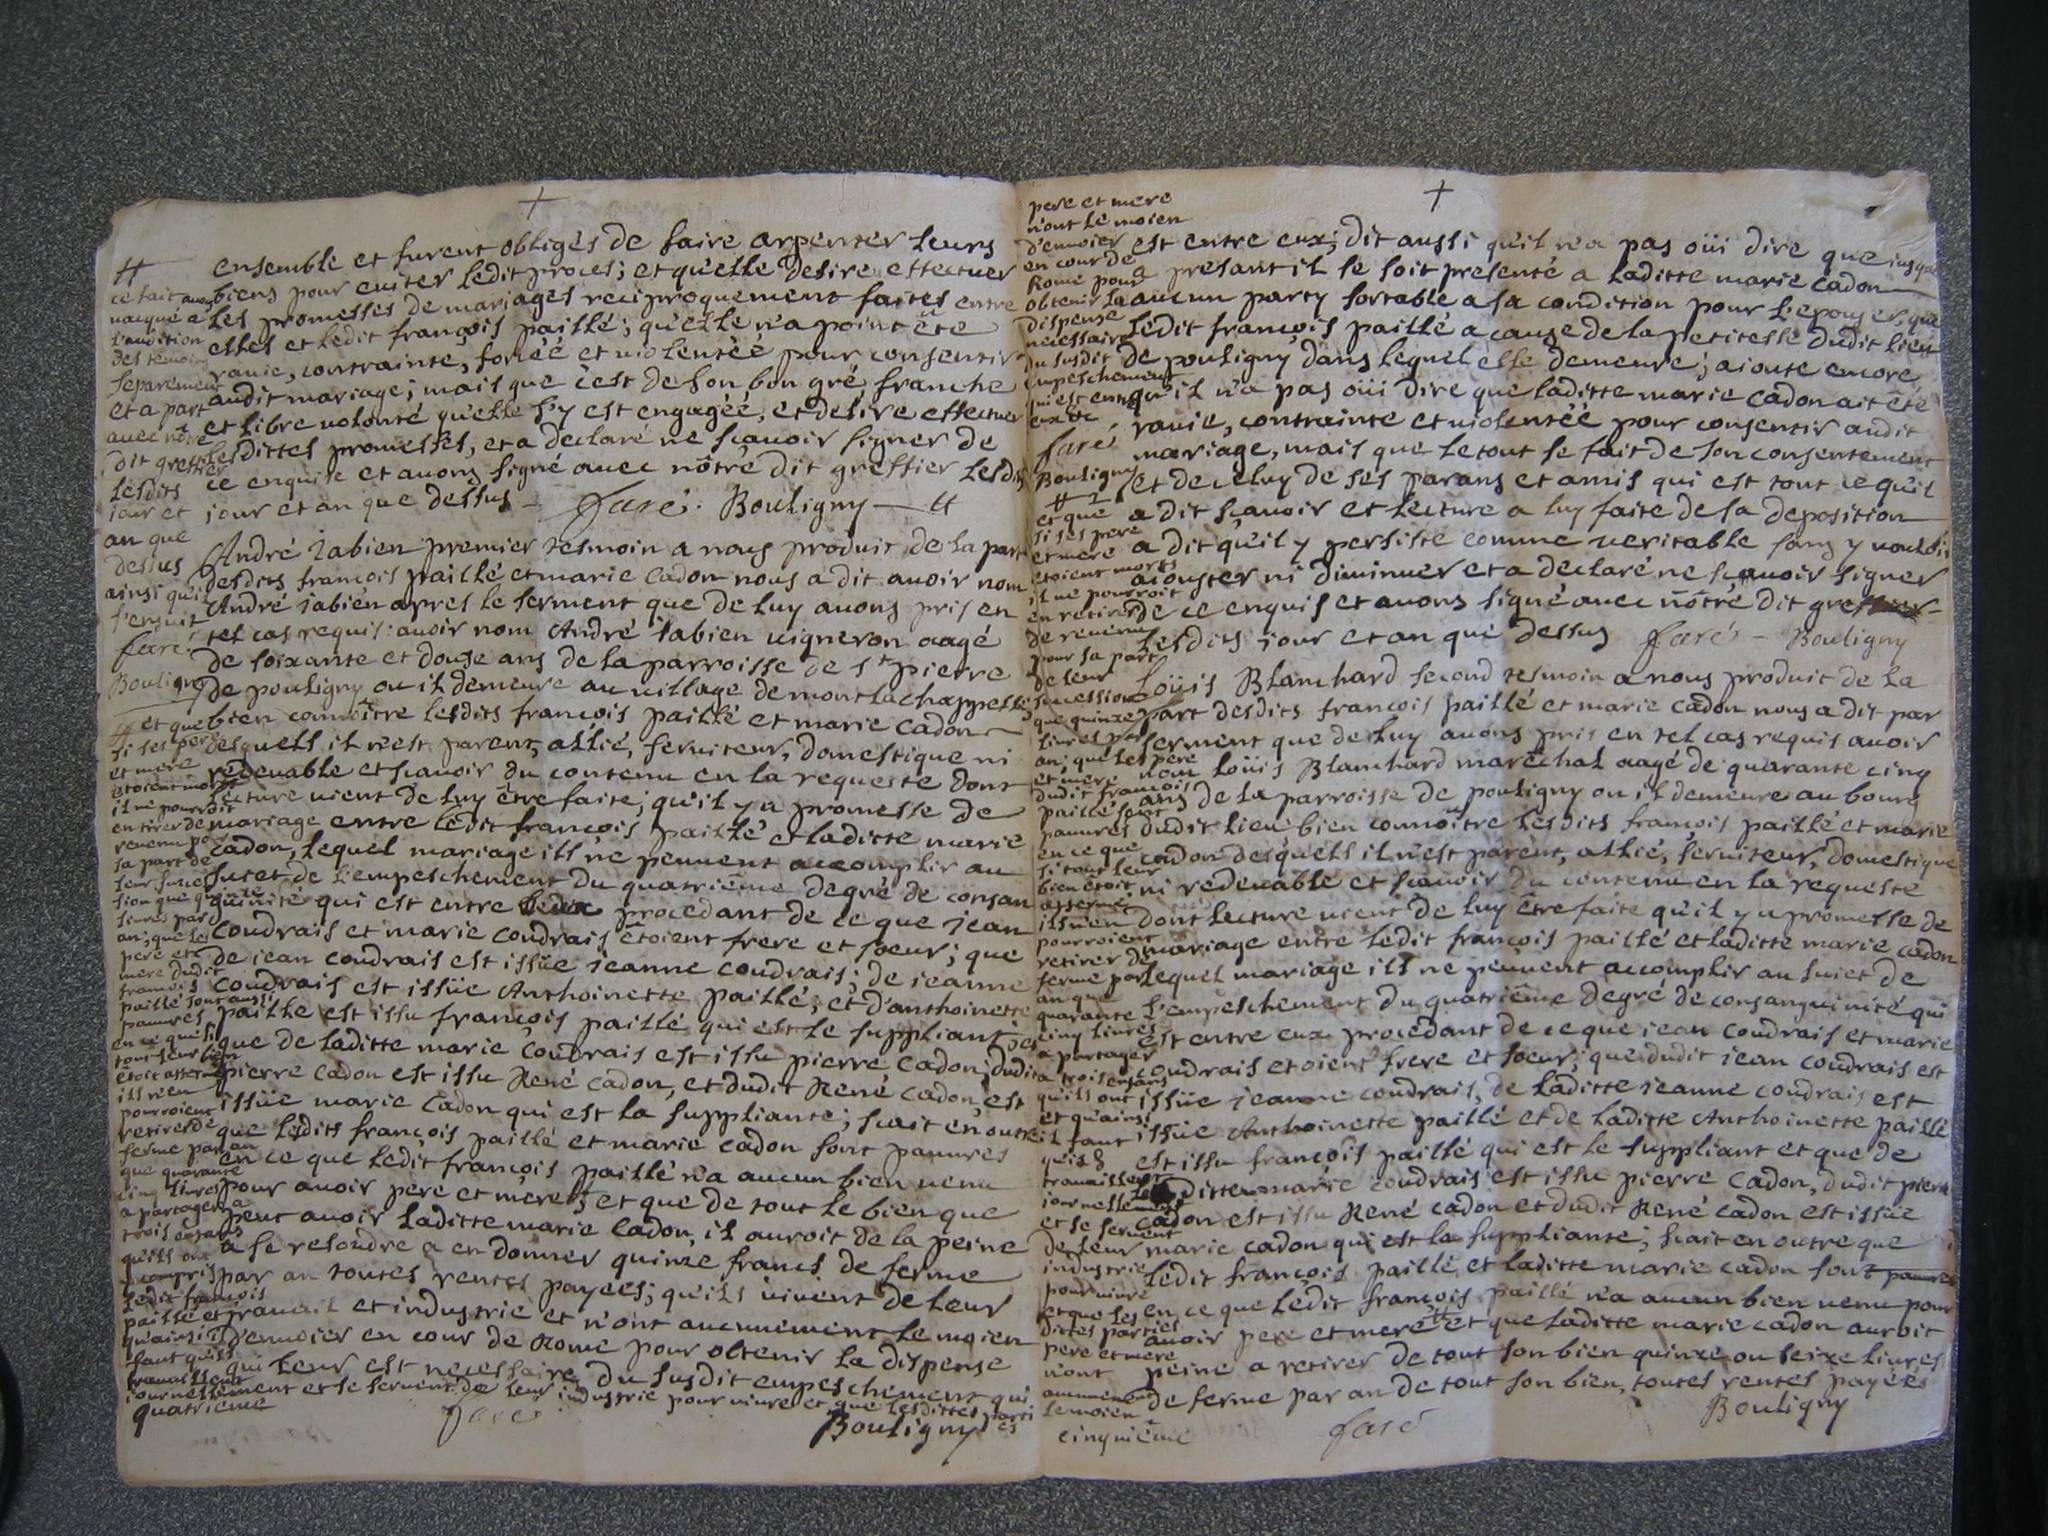 +
ensemble et furent obligés de faire arpenter leurs
biens pour eviter ledit proces; et qu'elle desire effectuer
les promesses de mariages reciproquement faites entre
elles et ledit françois paillé; qu'elle n'a point été
ravie, contrainte, forcéé et violentéé pour consentir
audit mariage; mais que c'est de son bon gré franche
et libre volonté qu'elle s'y est engagéé, et desire effectuer
lesdittes promesses, et a declaré ne sçavoir signer de
ce enquise et avons signé avec nôtre dit greffier lesdits
jour et an que dessus - faré. Bouligny
André jabien premier tesmoin a nous produit de la part
desdits francois paillé et marie cadon nous a dit avoir nom
André jabien apres le serment que de luy avons pris en
tel cas requis: avoir nom André jabien vigneron aagé
de soixante et douze ans de la parroisse de st pierre
de pouligny ou il demeure au village de mont la chappelle,
bien connoître lesdits françois paillé et marie cadon
desquels il n'est parent, allié, serviteur, domestique ni
redevable et scavoir du contenu en la requeste dont
lecture vient de luy être faite; qu'il y a promesse de
mariage entre ledit françois paillé et laditte marie
cadon, lequel mariage ils ne peuvent accomplir au
sujet de l'empeschement du quatriême degré de consan
guinité qui est entre procedant de ce que jean
coudrais et marie coudrais étoient frere et soeur; que
de jean coudrais est issüe jeanne coudrais; de jeanne
coudrais est issüe Anthoinette paillé; et d'anthoinette
paillé est issu françois paillé qui est le suppliant; et
que de laditte marie coudrais est issu pierre cadon; dudit
pierre cadon est issu René cadon, et dudit René cadon, est
issüe marie cadon qui est la suppliante; scait en outre
que lesdits françois paillé et marie cadon sont pauvres
en ce que ledit françois paillé n'a aucun bien venu
pour avoir pere et mere; et que de tout le bien que
peut avoir laditte marie cadon, il auroit de la peine
a se resoudre a en donner quinze francs de ferme
par an toutes rentes payéés; qu'ils vivent de leur
travail et industrie et n'ont aucunement le moien
d'envoier en cour de Rome pour obtenir la dispense
qui leur est necessaire du susdit empeschement qui
ce fait avons
vacqué a
l'audition
des témoins
separement
et a part
avec nôtre
dit greffier
lesdits
jour et
an que
dessus
ainsi qu'il
s'ensuit
faré
Bouligny
et que
si ses pere
et mere
étoient morts
il ne pourroit
en tirer de
revenu pour
sa part de
leur succes
sion que quinze
livres par
an; que les
pere et
mere dudit
françois
paillé sont aussi
pauvres
en ce que si
tout leur bien
étoit affermé
ils n'en
pourroient
retirer de
ferme par an
que quarante
cinq livres
a partager a
trois enfans
qu'ils ont
y compris
ledit françois
paillé et
qu'ainsi il
faut qu'ils
travaillent
journellement et se servent de leur industrie pour vivre et que lesdittes parti
es
quatrieme
faré
Bouligny
+
est entre eux; dit aussi qu'il n'a pas oüi dire que jusque
a present il se soit presenté a laditte marie cadon
aucun party sortable a sa condition pour l'epouser, que
ledit françois paillé a cause de la petitesse dudit lieu
de pouligny dans lequel elle demeure; ajoute encore
qu'il n'a pas oüi dire que laditte marie cadon ait été
ravie, contrainte et violentéé pour consentir audit
mariage, mais que le tout se fait de son consentement
et de celuy de ses parans et amis qui est tout ce qu'il
a dit scavoir et lecture a luy faite de sa deposition
a dit qu'il y persiste comme veritable sans y vouloir
ajouster ni diminuer et a declaré ne scavoir signer
de ce enquis et avons signé avec nôtre dit greffier
lesdits jour et an que dessus faré - Bouligny
Loüis Blanchard second tesmoin a nous produit de la
part desdits françois paillé et marie cadon nous a dit par
serment que de luy avons pris en tel cas requis avoir
nom Loüis Blanchard maréchal aagé de quarante cinq
ans de la parroisse de pouligny ou il demeure au bourg
dudit lieu bien connoître lesdits françois paillé et marie
cadon desquels il n'est parent, allié, serviteur, domestique
ni redevable et scavoir du contenu en la requeste
dont lecture vient de luy être faite qu'il y a promesse de
mariage entre ledit françois paillé et laditte marie cadon
lequel mariage ils ne peuvent accomplir au sujet de
l'empeschement du quatriême degré de consanguinité qui
est entre eux procedant de ce que jean coudrais et marie
coudrais etoient frere et soeur; que dudit jean coudrais est
issüe jeanne coudrais, de laditte jeanne coudrais est
issüe Anthoinette paillé et de laditte Anthoinette paillé
est issu françois paillé qui est le suppliant et que de
laditte marie coudrais est issu pierre cadon, dudit pierre
cadon est issu René cadon et dudit René cadon est issüe
marie cadon qui est la suppliante; scait en outre que
ledit françois paillé et laditte marie cadon sont pauvres
en ce que ledit françois paillé n'a aucun bien venu pour
avoir pere et mere et que laditte marie cadon auroit
peine a retirer de tout son bien quinze ou seize livres
de ferme par an de tout son bien, toutes rentes payéés
pere et mere
n'ont le moien
d'envoier
en cour de
Rome pour
obtenir la
dispense
necessaire
du susdit
empeschement
qui est entre
eux
faré
Bouligny
et que
si ses pere
et mere
etoient morts
il ne pourroit
en retirer
de revenu
pour sa part
de leur
succession
que quinze
livres par
an; que les pere
et mere
dudit françois
paillé sont
pauvres
en ce que
si tout leur
bien étoit
affermé
ils n'en
pourroient
retirer de
ferme par
an que
quarante
cinq livres
a partager
a trois enfans
qu'ils ont
et qu'ainsi
il faut
qu'ils
travaillent
journellement
et se servent
de leur
industrie
pour vivre
et que les
dittes parties
pere et mere
n'ont
aucunement
le moien
cinquiême
faré
Bouligny